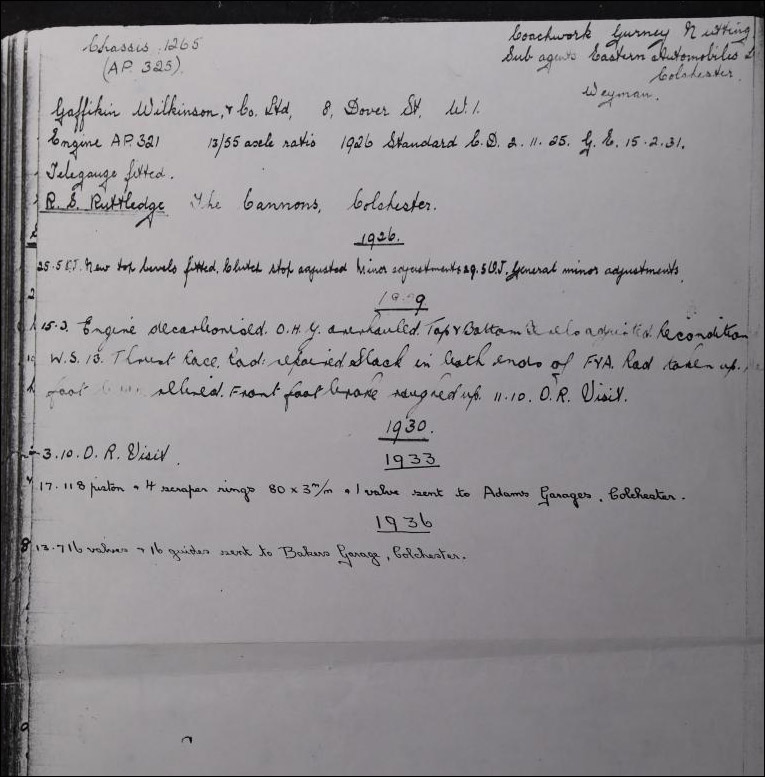 Chassis 1265
(AP. 325).
Coachwork Gurney Nutting
Sub agents Eastern Automobiles
Colchester.
Weyman.
Gaffikin Wilkinson, & Co. Ltd, 8, Dover St, W.1.
Engine AP.321 13/55 axle ratio 1926 Standard C.D. 2.11.25. G.E. 15.2.31.
Telegauge fitted.
R. S. Ruttledge The Cannons, Colchester.
1926.
25.5 O.J. New top bevels fitted. Clutch stop adjusted Minor adjustments 29.5 O.J. General minor adjustments
1929
15.3. Engine decarbonised. O.H.G. overhauled. Top & Bottom adjusted. Recondition
W.S. 13. Thrust Race. Rad: repaired. Slack in both ends of FYA. Rad taken up.
foot relined. Front foot brake rangned up. 11.10. O.R. Visit.
1930.
3.10. O.R. Visit.
1933
17.11 8 piston & 4 scraper rings 80 x 3 m/m & 1 valve sent to Adams Garages, Colchester.
1936
13.7 16 valves & 16 guides sent to Bakers Garage, Colchester.